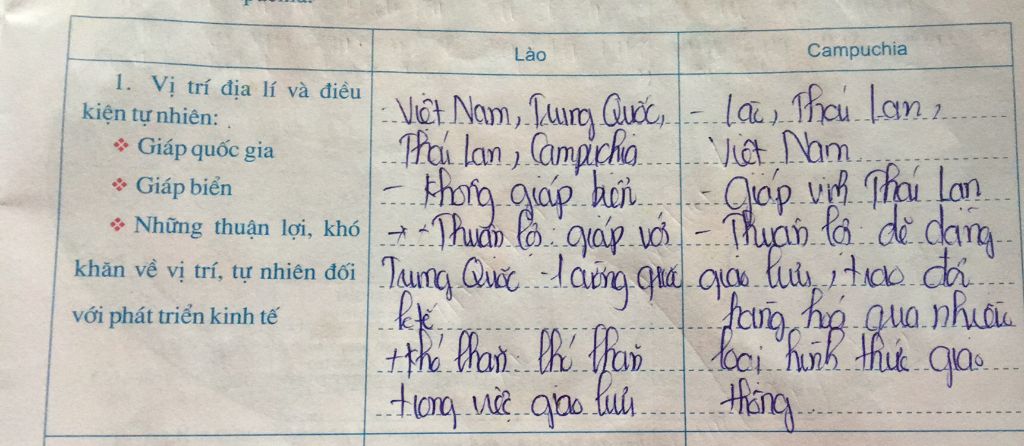 Lào
Campuchia
1. Vị trí địa lí và điều
kiện tự nhiên:
❖ Giáp quốc gia
❖ Giáp biển
❖ Những thuận lợi, khó
khăn về vị trí, tự nhiên đối
với phát triển kinh tế
- Việt Nam, Trung Quốc,
Thái Lan, Campichia
- không giáp biển
+ - Thuận lợi giáp với
Trung Quốc - 1 cường quốc
k tế
+ khó khăn khó khăn
trong việc giao lưu
- Lào, Thái Lan,
Việt Nam
- Giáp vịnh Thái Lan
- Thuận lợi dễ dàng
giao lưu, trao đổi
hàng hoá qua nhiều
loại hình thức giao
thông